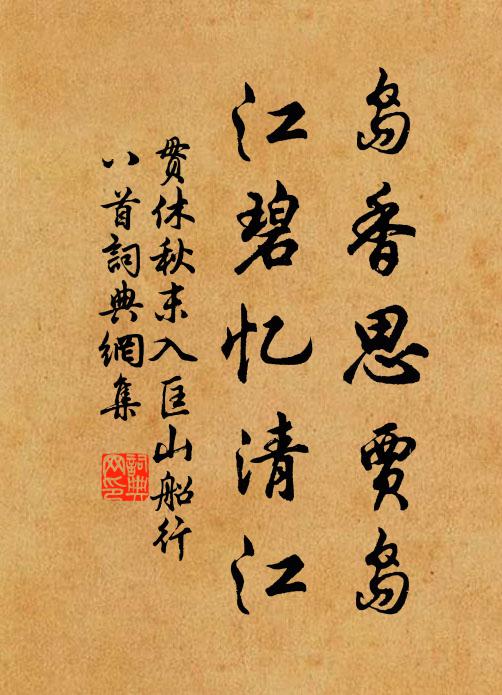 岛香思贾岛
江碧忆清江
贯休秋末入匡山船行
八首詞典網集
詞典
网印